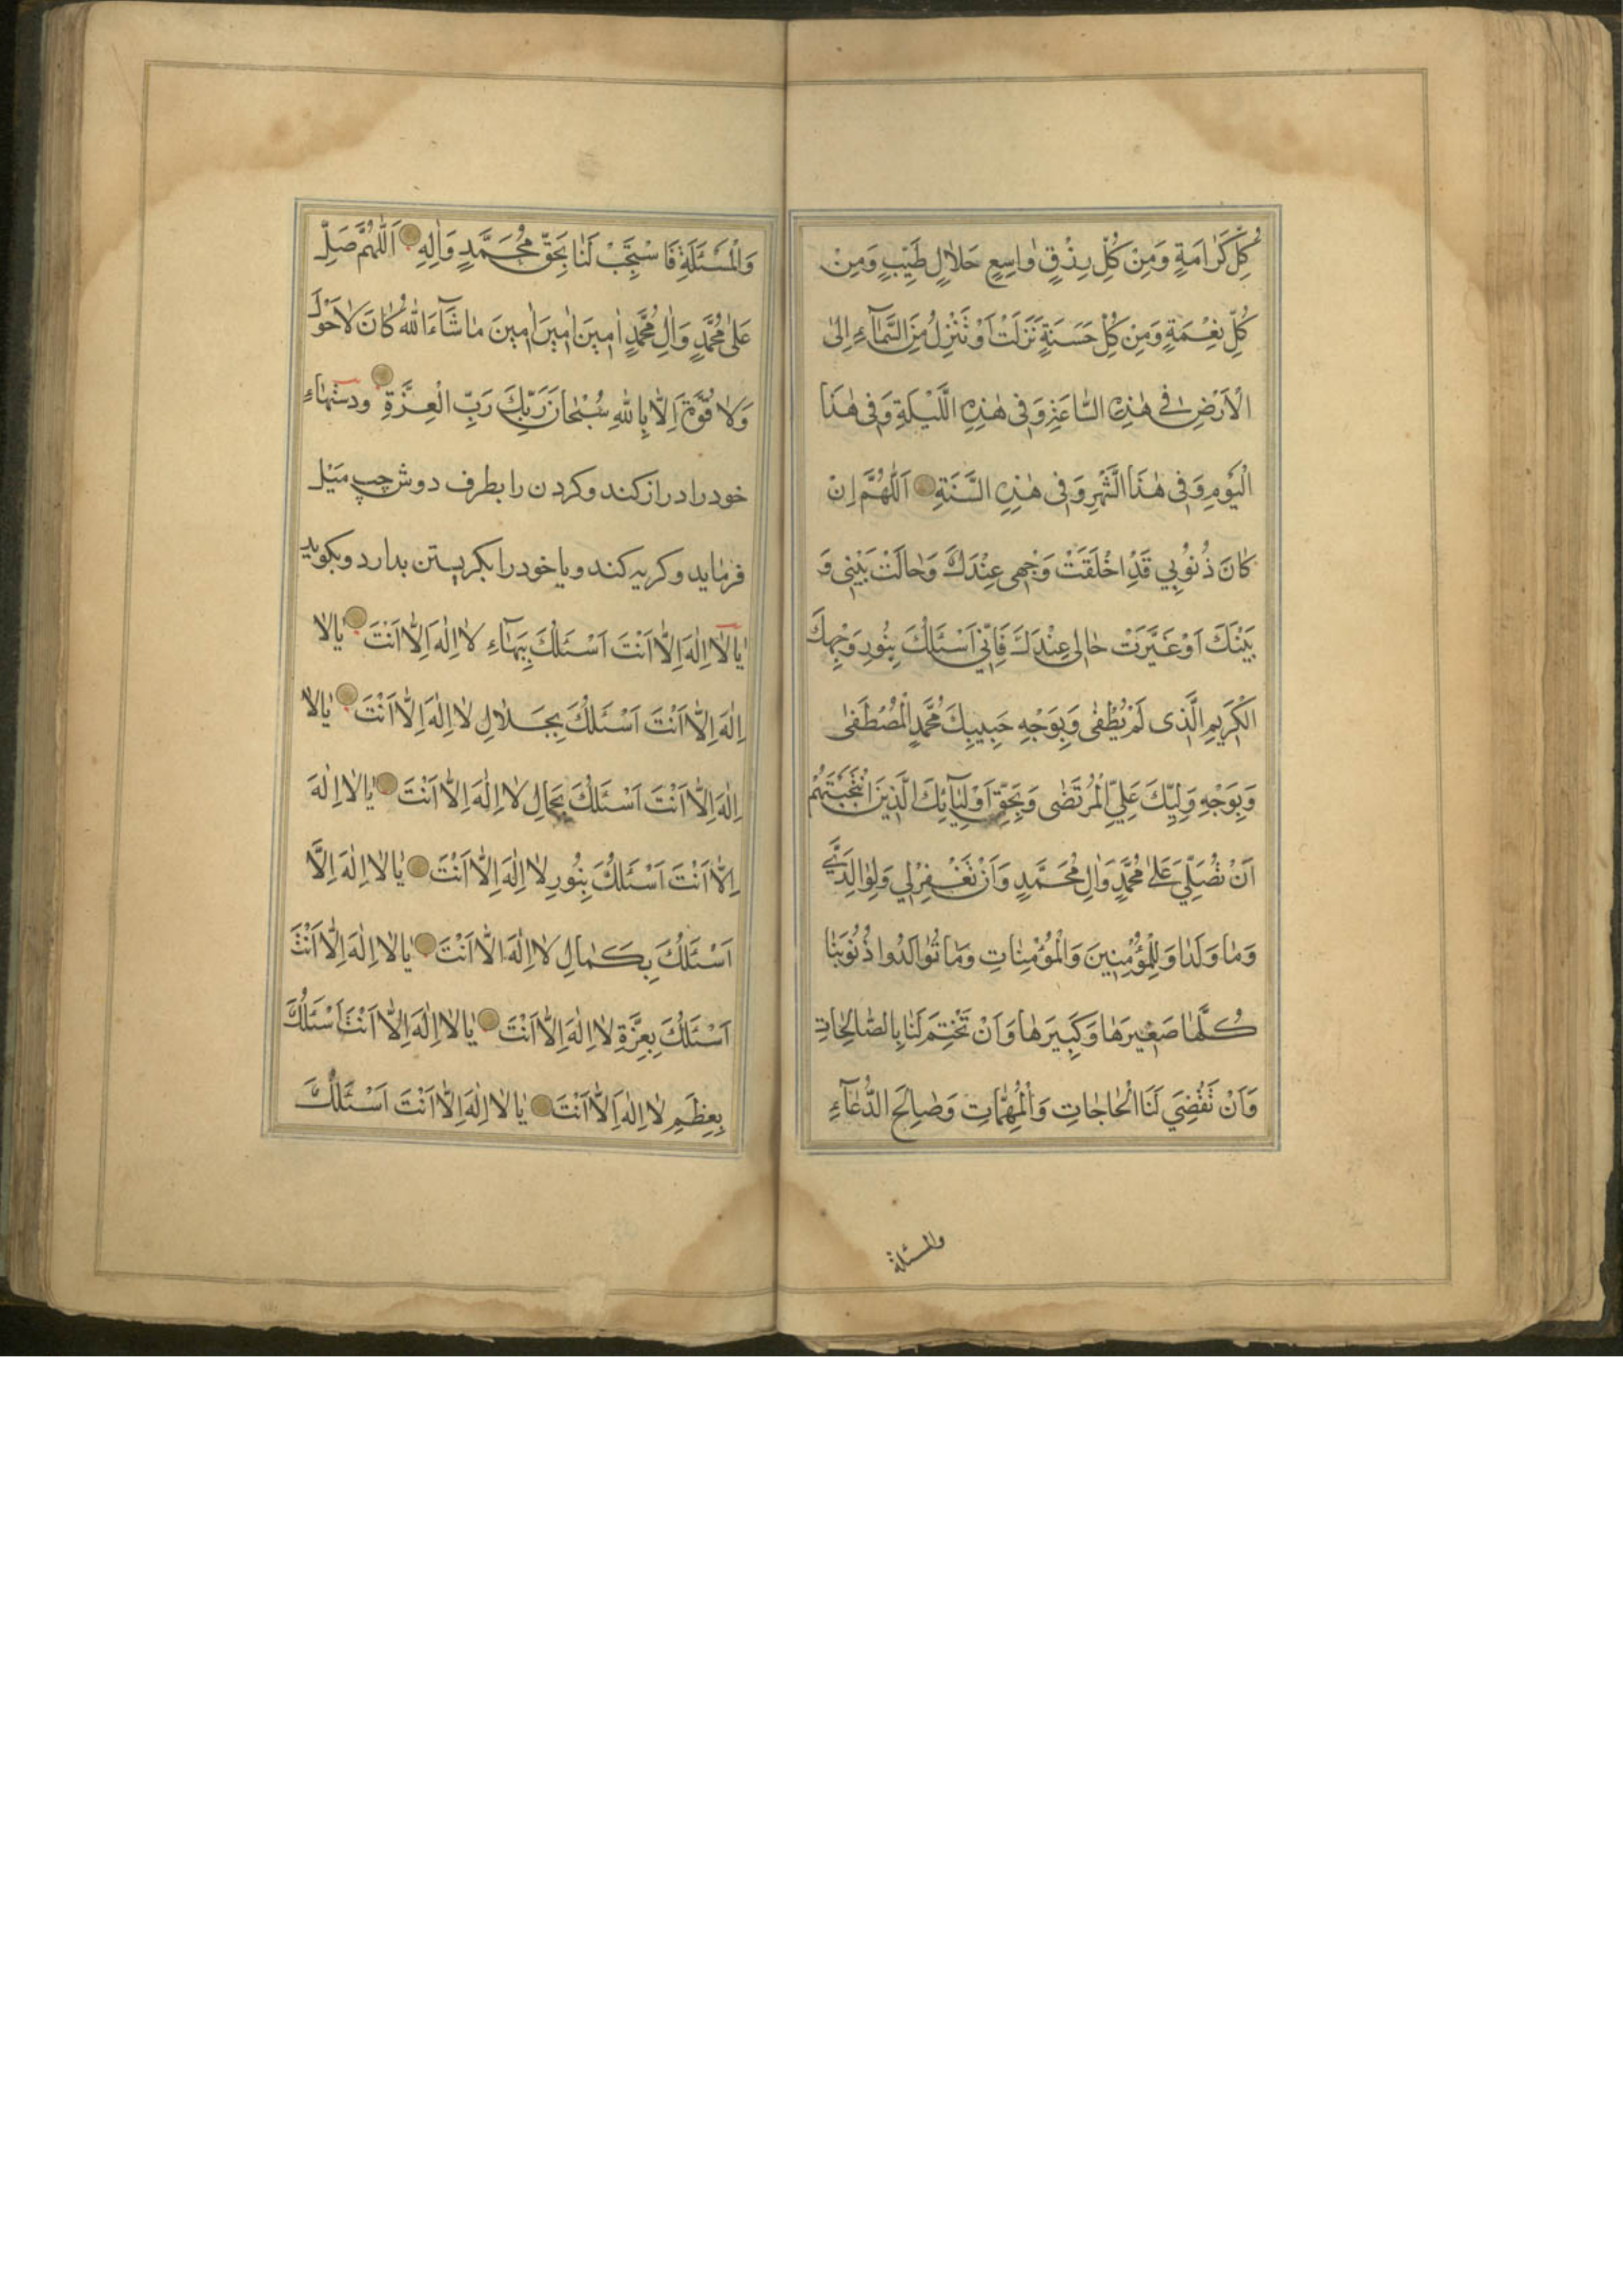 كُلِّ كَرٰامَةٍ وَمِنْ كُلِّ رِزْقٍ وٰاسِعٍ حَلاٰلٍ طَيِّبٍ وَمِنْ
كُلِّ نِعْمَةٍ وَمِنْ كُلِّ حَسَنَةٍ نَزَلَتْ اَوْ تَنْزِلُ مِنَ السَّمٰآءِ اِلىٰ
الْاَرْضِ فِي هٰذِهِ السّٰاعَةِ وَفِي هٰذِهِ اللَّيْلَةِ وَفِي هٰذَا
الْيَوْمِ وَفِي هٰذَا الشَّهْرِ وَفِي هٰذِهِ السَّنَةِ اَللّٰهُمَّ اِنْ
كٰانَ ذُنُوُبِي قَدِ اخْلَقَتْ وَجْهِي عِنْدَكَ وَحٰالَتْ بَيْنِي وَ
بَيْنَكَ اَوْ غَيَّرَتْ حٰالِي عِنْدَكَ فَاِنّي اَسْئَلُكَ بِنُورِ وَجْهِكَ
الْكَرِيمِ الَّذِى لَمْ يُطْفٰى وَبِوَجْهِ حَبِيبِكَ مُحَمَّدٍ الْمُصْطَفٰى
وَبِوَجْهِ وَلِيِّكَ عَلِيٍّ الْمُرْتَضٰى وَبِحَقِّ اَوْلِيٰآئِكَ الَّذِينَ انْتَجَبْتَهُمْ
اَنْ تُصَلِّيَ عَلىٰ مُحَمَّدٍ وَاٰلِ مُحَمَّدٍ وَاَنْ تَغْفِرْلِي وَلِوٰالِدَيَّ
وَمٰا وَلَدٰا وَلِلْمُؤْمِنِينَ وَالْمُؤْمِنٰاتِ وَمٰا تَوٰالَدُوا ذُنُوبَنٰا
كُلَّهٰا صَغِيرَهٰا وَكَبِيرَهٰا وَاَنْ تَخْتِمَ لَنٰا بِالصّٰالِحٰاتِ
وَاَنْ تَقْضِيَ لَنَا الْحٰاجٰاتِ وَالْمُهِمّٰاتِ وَصٰالِحَ الدُّعٰآءِ
والمسئلة
وَالْمَسْئَلَةِ فَاسْتَجِبْ لَنٰا بِحَقِّ مُحَمَّدٍ وَاٰلِهِ اَللّٰهُمَّ صَلِّ
عَلىٰ مُحَمَّدٍ وَاٰلِ مُحَمَّدٍ اٰمِينَ اٰمِينَ اٰمِينَ مٰا شٰآءَ اللّٰهُ كٰانَ لاٰ حَوْلَ
وَلاٰ قُوَّةَ اِلّٰا بِاللّٰهِ سُبْحٰانَ رَبِّكَ رَبِّ الْعِزَّةِ ودستهاء
خود را دراز كند وكردن را بطرف دوش چپ ميل
فرمايد وكريه كند ويا خود را بكريستن بدارد وبكويد
يٰا لاٰ اِلٰهَ اِلّٰا اَنْتَ اَسْئَلُكَ بِبَهٰآءِ لاٰ اِلٰهَ اِلّٰا اَنْتَ يٰا لاٰ
اِلٰهَ اِلّٰا اَنْتَ اَسْئَلُكَ بِجَلاٰلِ لاٰ اِلٰهَ اِلّٰا اَنْتَ يٰا لاٰ
اِلٰهَ اِلّٰا اَنْتَ اَسْئَلُكَ بِجَمٰالِ لاٰ اِلٰهَ اِلّٰا اَنْتَ يٰا لاٰ اِلٰهَ
اِلّٰا اَنْتَ اَسْئَلُكَ بِنُورِ لاٰ اِلٰهَ اِلّٰا اَنْتَ يٰا لاٰ اِلٰهَ اِلَّا
اَسْئَلُكَ بِكَمٰالِ لاٰ اِلٰهَ اِلّٰا اَنْتَ يٰا لاٰ اِلٰهَ اِلّٰا اَنْتَ
اَسْئَلُكَ بِعِزَّةِ لاٰ اِلٰهَ اِلّٰا اَنْتَ يٰا لاٰ اِلٰهَ اِلّٰا اَنْتَ اَسْئَلُكَ
بِعِظَمِ لاٰ اِلٰهَ اِلّٰا اَنْتَ يٰا لاٰ اِلٰهَ اِلّٰا اَنْتَ اَسْئَلُكَ